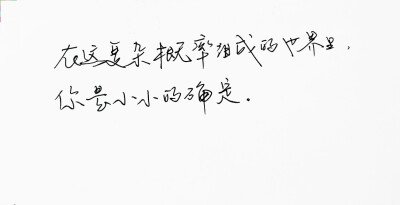 在这复杂概率组成的世界里,
你是小小的确定.